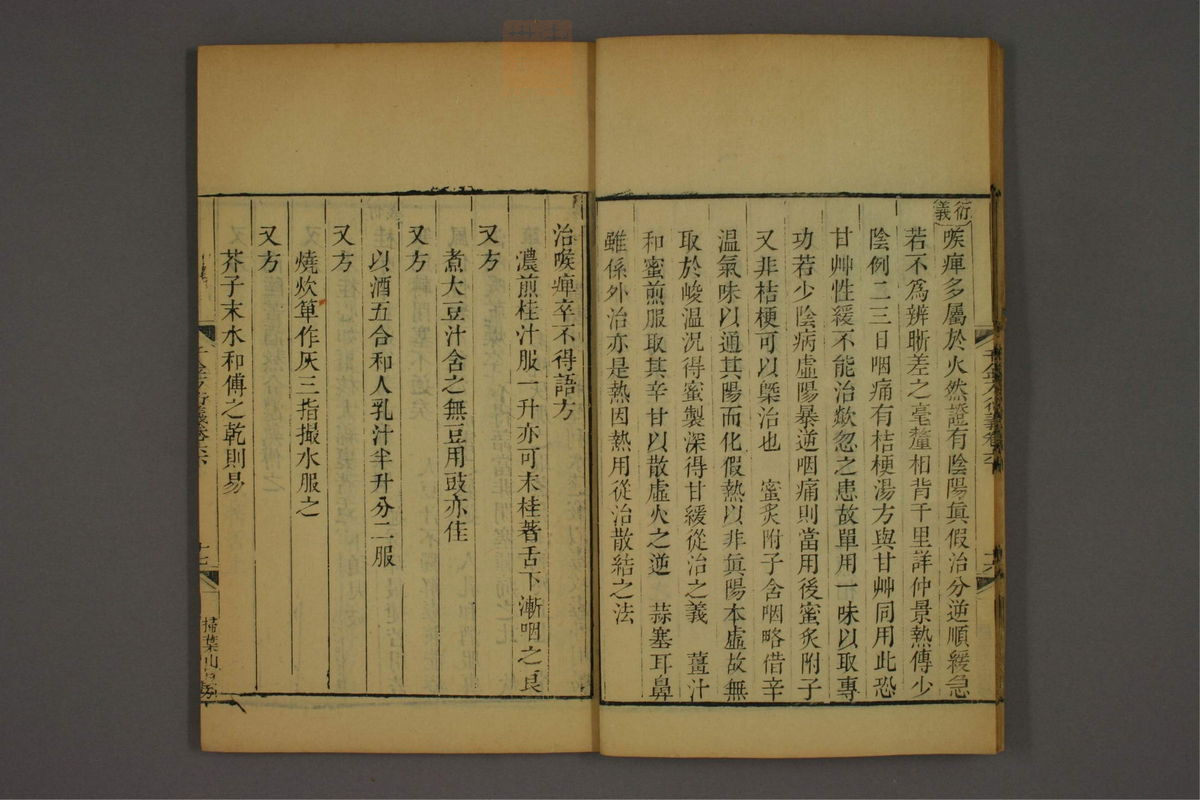 衍義
喉痺多屬於火然證有陰陽眞假治分逆順緩急
若不爲辨晣差之毫釐相背千里詳仲景熱傳少
陰例二三日咽痛有桔梗湯方與甘艸同用此恐
甘艸性緩不能治欻忽之患故單用一味以取專
功若少陰病虛陽暴逆咽痛則當用後蜜炙附子
又非桔梗可以槩治也　蜜炙附子含咽略借辛
溫氣味以通其陽而化假熱以非眞陽本虛故無
取於峻溫況得蜜製深得甘緩從治之義　薑汁
和蜜煎服取其辛甘以散虛火之逆　蒜塞耳鼻
雖係外治亦是熱因熱用從治散結之法
治喉痺卒不得語方
濃煎桂汁服一升亦可末桂著舌下漸咽之良
又方
煮大豆汁含之無豆用豉亦佳
又方
以酒五合和人乳汁半升分二服
又方
燒炊箄作灰三指撮水服之
又方
芥子末水和傅之乾則易
十七
掃葉山房